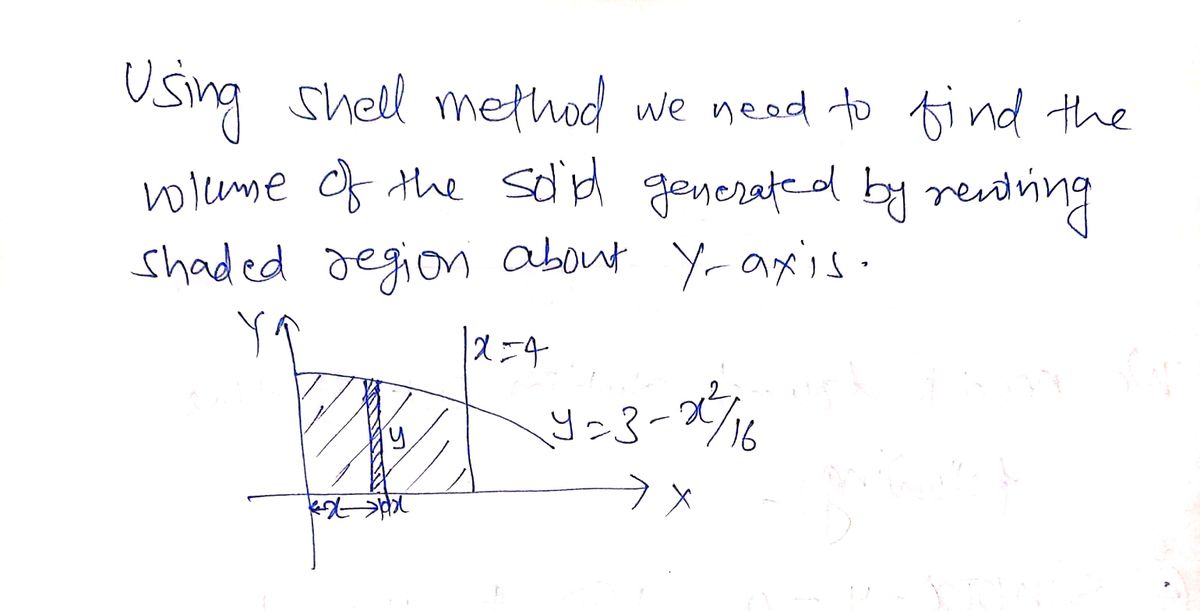 Using shell method we need to find the
volume of the solid generated by revolving
shaded region about Y-axis.
Y
x=4
y=3-x²/16
y
x dx
X